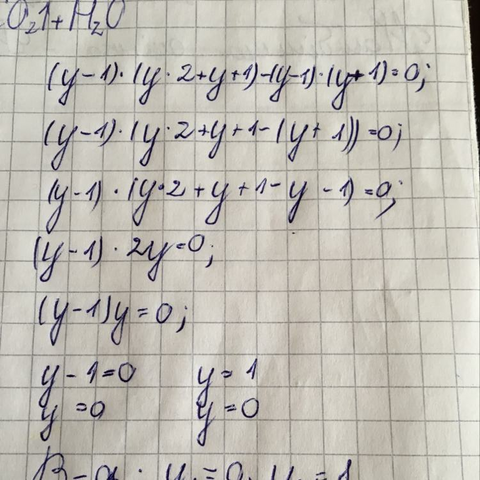 O₂1+H₂O
(y-1)·(y·2+y+1)-(y-1)·(y+1)=0;
(y-1)·(y·2+y+1-(y+1))=0;
(y-1)·(y·2+y+1-y-1)=0;
(y-1)·2y=0;
(y-1)y=0;
y-1=0 y=1
y=0 y=0